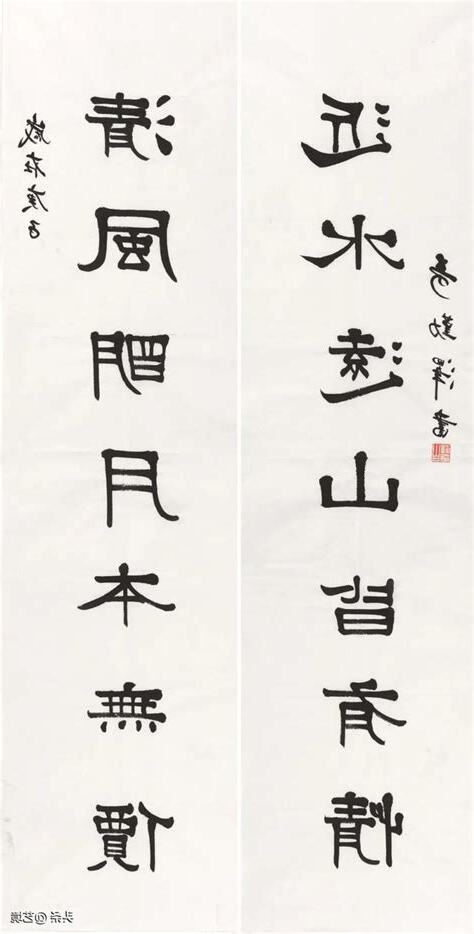 歲在庚子
清風眀月本無價
近水遠山皆有情
勤澤書
头条@艺境